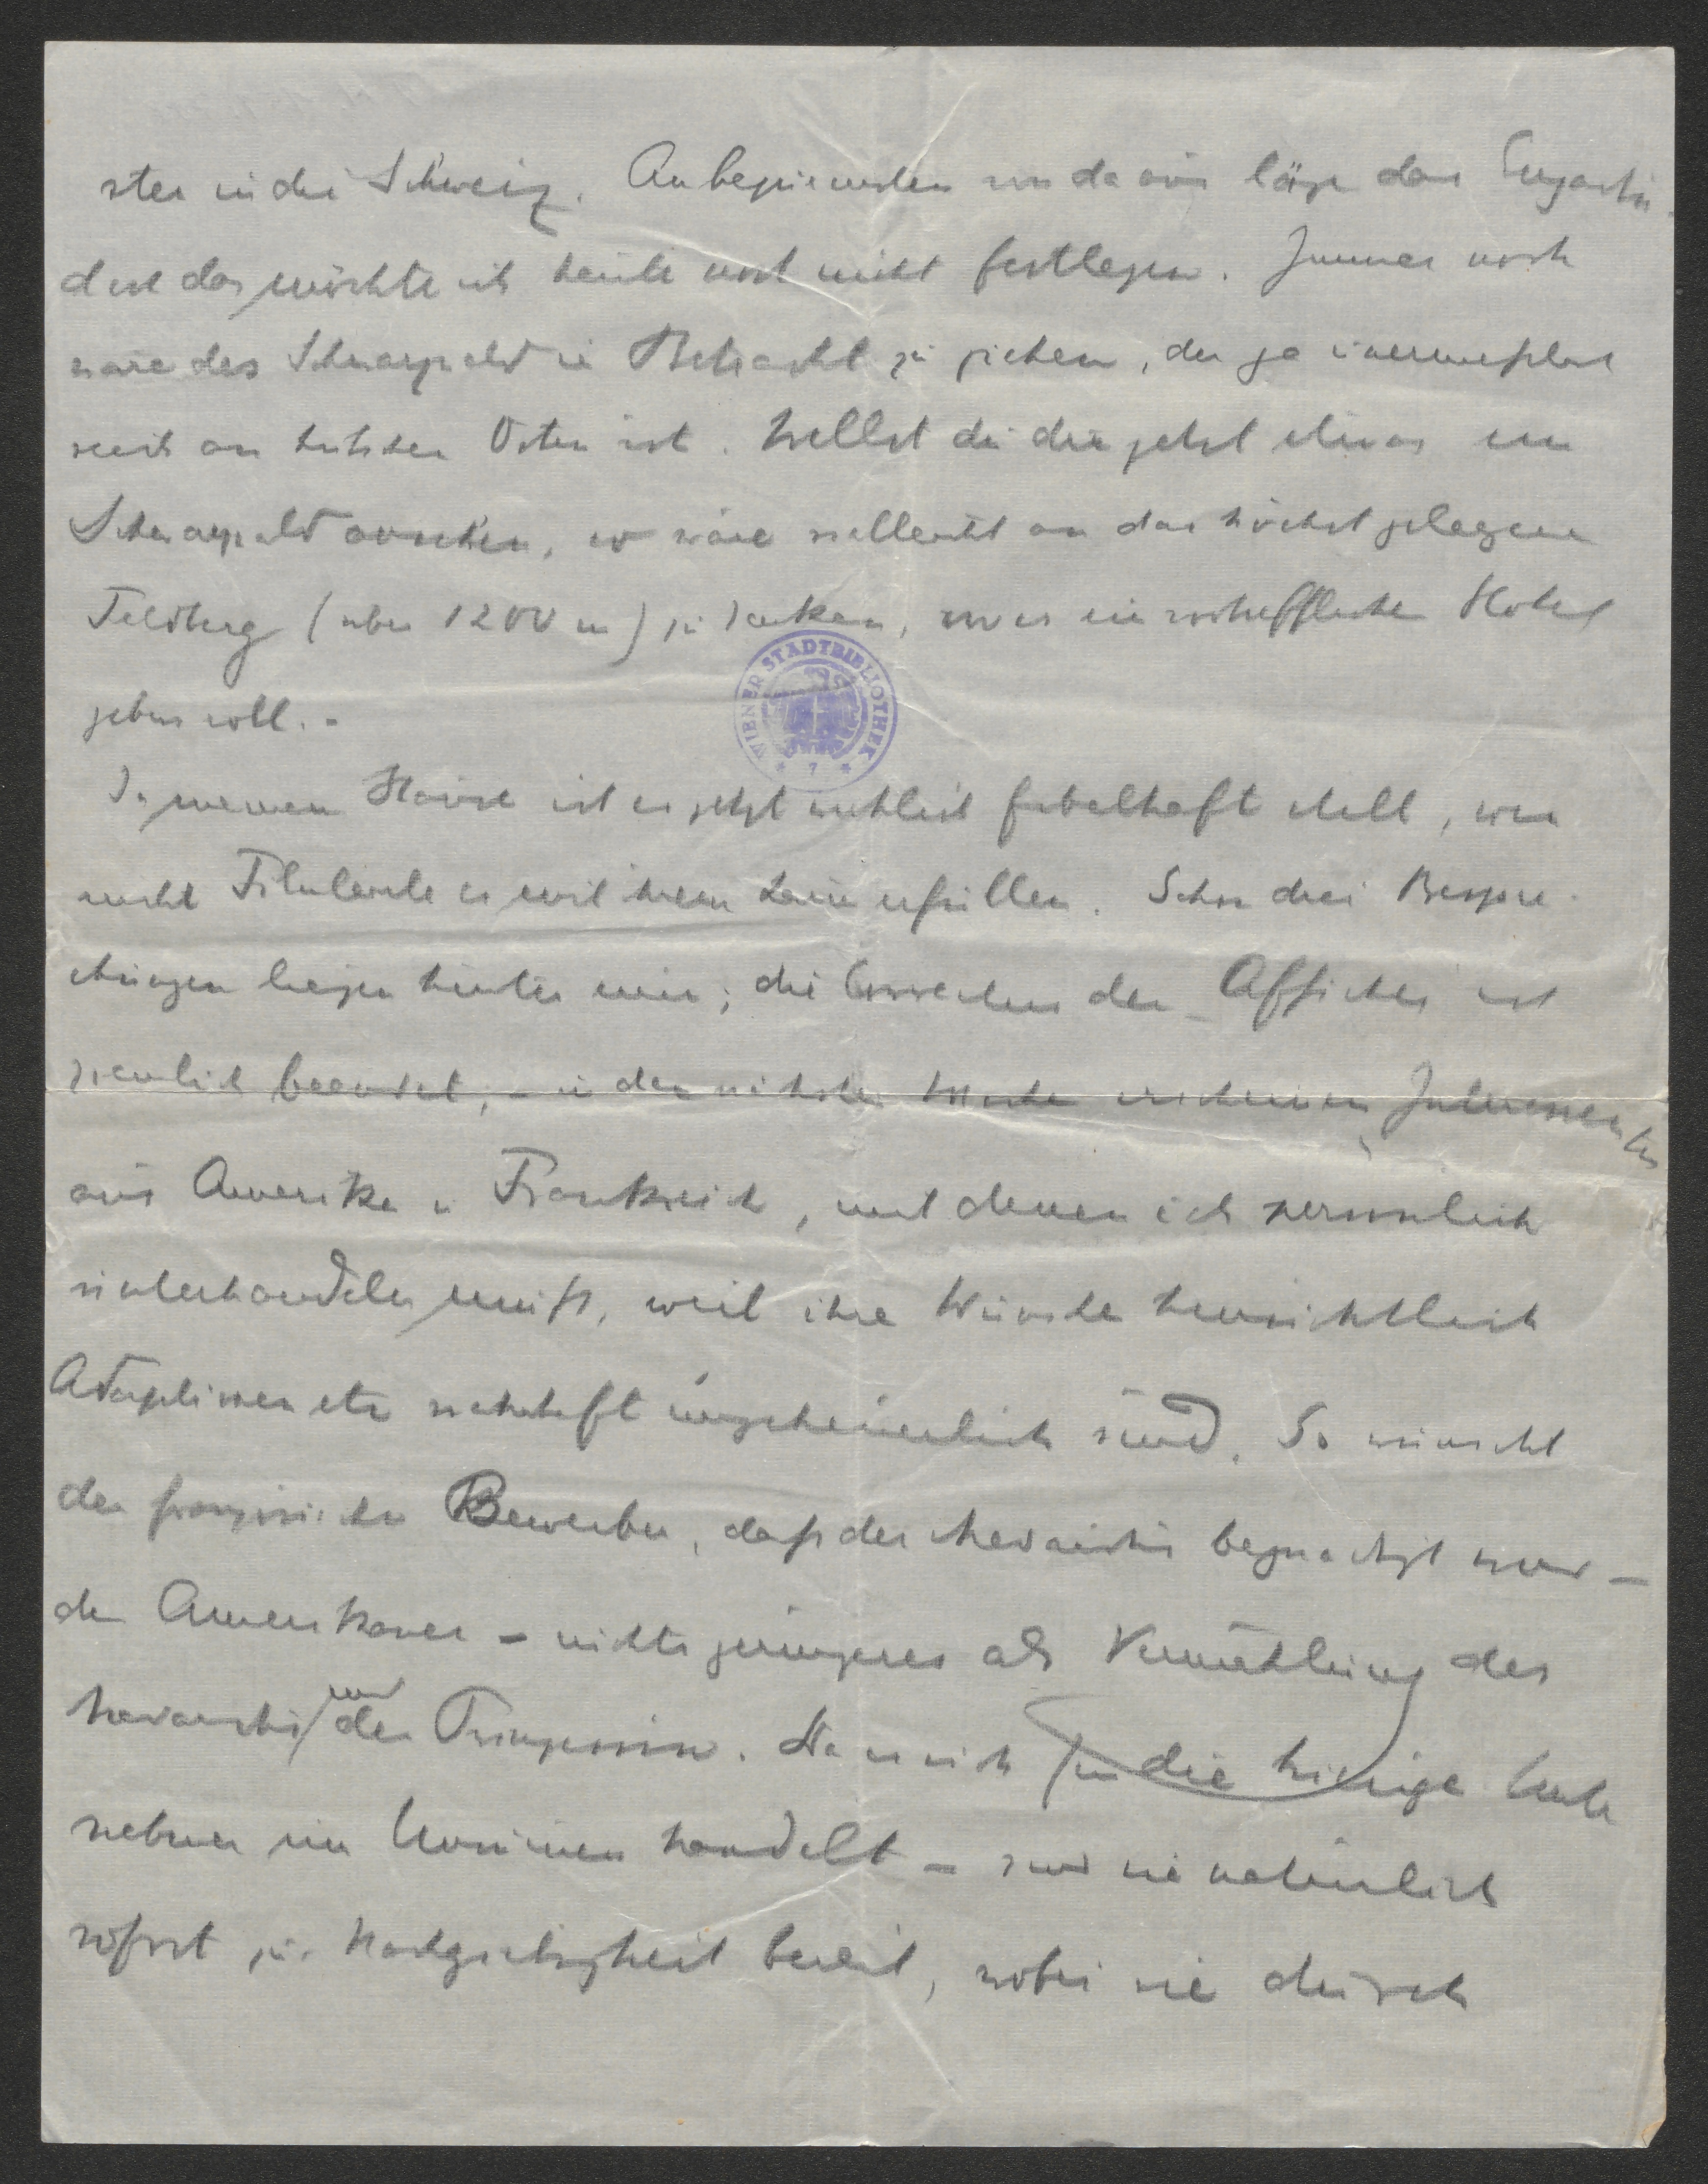 ster in die Schweiz. Am bequemsten von da aus läge das Engadin
doch das möchte ich heute noch nicht festlegen. Immer noch
wäre der Schwarzwald in Betracht zu ziehen, der ja unermeßlich
reich an hübschen Orten ist. Willst du dir jetzt etwas im
Schwarzwald aussuchen, so wäre vielleicht an das höchst gelegene
Feldberg (über 1200 m) zu denken, wo es ein vortreffliches Hotel
geben soll. -
In meinem Hause ist es jetzt wirklich fabelhaft still, wenn
nicht Filmleute es mit ihrem Lärm erfüllen. Schon drei Bespre-
chungen liegen hinter mir; die der Affichen ist
ziemlich beendet, - in der nächsten Woche erscheinen Interessenten
aus Amerika u Frankreich, mit denen ich persönlich
unterhandeln muß, weil ihre Wünsche hinsichtlich
Adaptionen etc wahrhaft ungeheuerlich sind. So wünscht
der französische Bewerber, daß der begnadigt wird -
der Amerikaner - nichts geringeres als Vermählung des
und der Prinzessin. Da es sich für die hiesige Unter
nehmer um Unsummen handelt - sind sie natürlich
sofort zur Nachgiebigkeit bereit, wobei sie durch
WIENER STADTBIBLIOTHEK